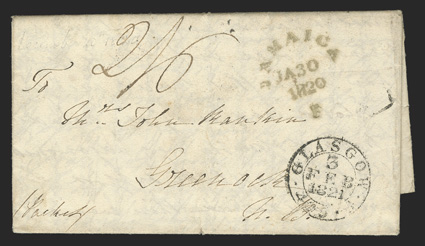 2/6
JAMAICA
JA 30
1820
To
Mrs John Rankin
Greenock
N. B.
GLASGOW
3
FEB
1821